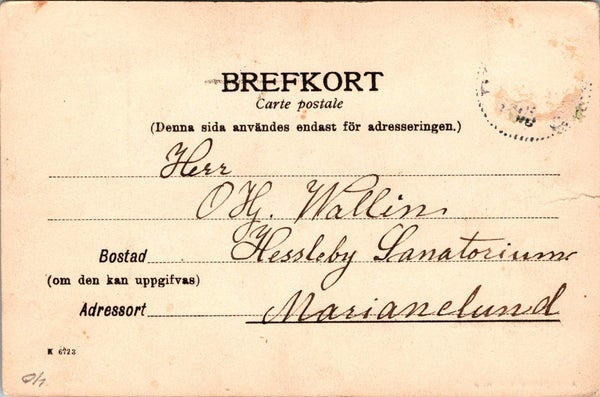 BREFKORT
Carte postale
(Denna sida användes endast för adresseringen.)
Herr
O Hj. Wallin
Bostad Hessleby Sanatorium
(om den kan uppgifvas)
Adressort Marianelund
K 6723